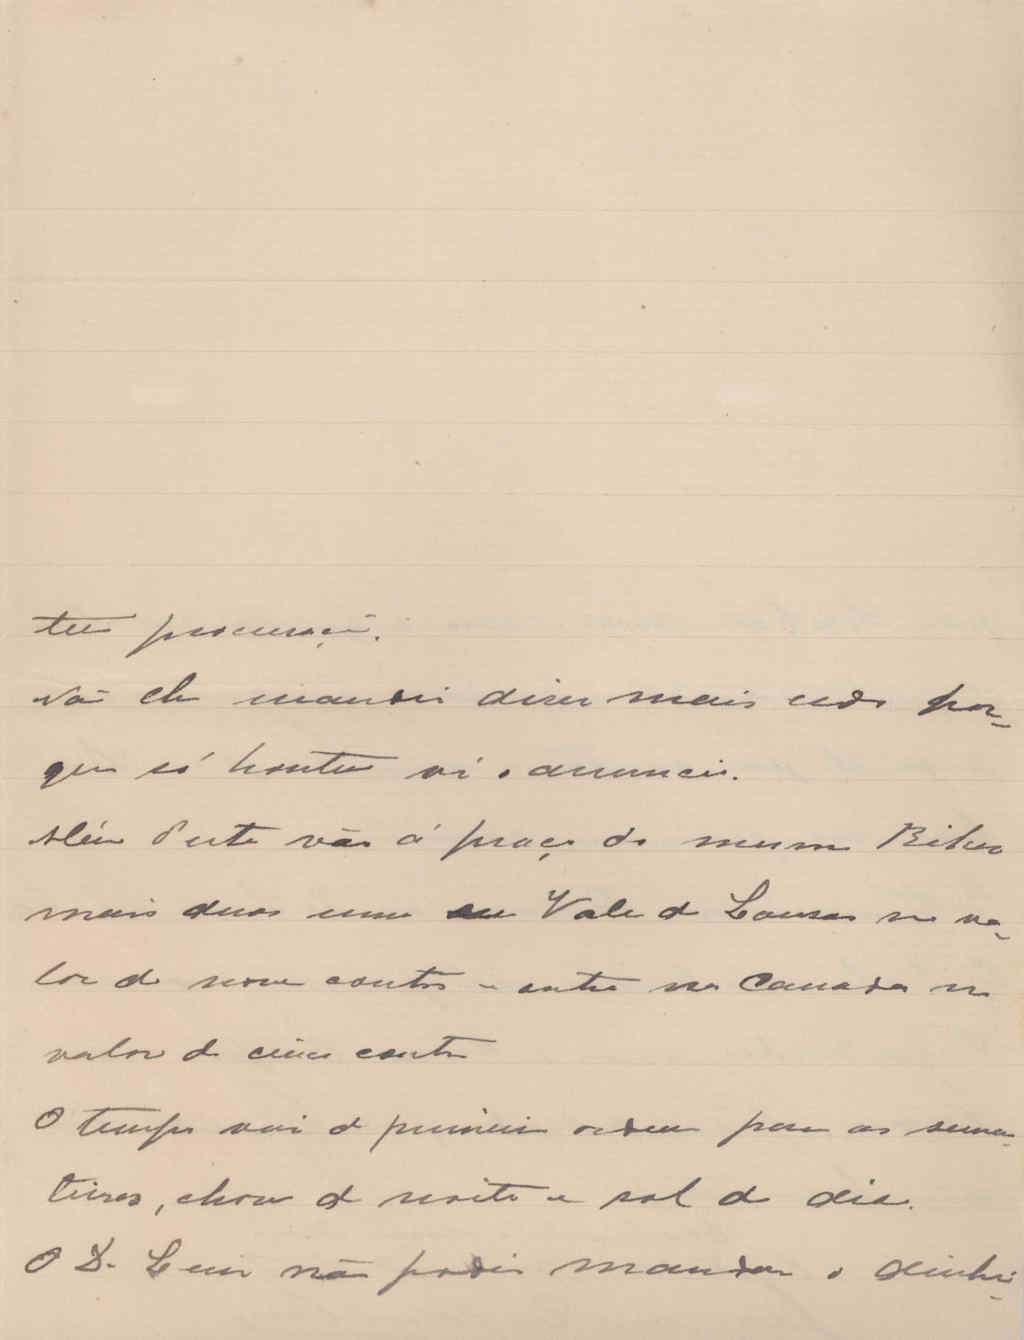 tua procuração.
Não lhe mandei diser mais cedo por-
que só hontem vi o anuncio.
Alem d'esta vão á praça do mesmo Biker
mais duas uma em Vale de Lousas no va-
lor de nove contos e outra na Canada no
valor de cinco contos
O tempo vai de primeira ordem para as semen
teiras, chove de noite e sol de dia.
O D. não podia mandar o dinhei-